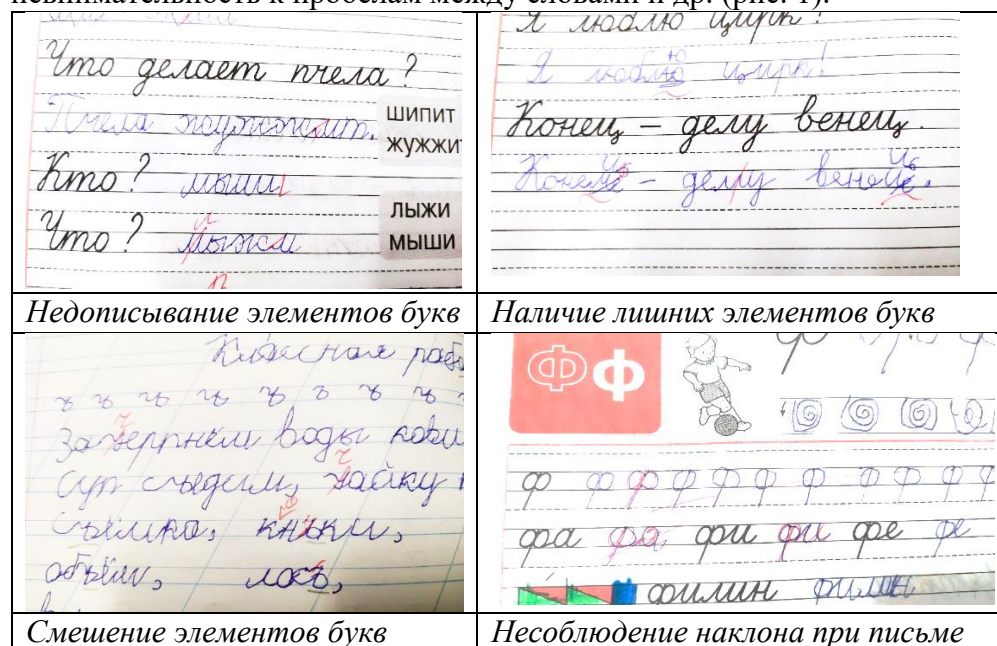 невнимательность к пробелам между словами и др. (рис. 1).
Что делает пчела?
Пчела жужжит.
шипит
жужжи
Кто? мыши
лыжи
Что? мыжи
мыши
Я люблю цирк!
Я люблю цирк!
Конец – делу венец.
Конец – делу венец.
Недописывание элементов букв
Наличие лишних элементов букв
Классная
воды
Суп съедим,
съёмка,
объём, лось,
Ф ф
ф ф ф ф ф ф ф ф ф ф
фа фа фи фи фе фе
филин филин
Смешение элементов букв
Несоблюдение наклона при письме